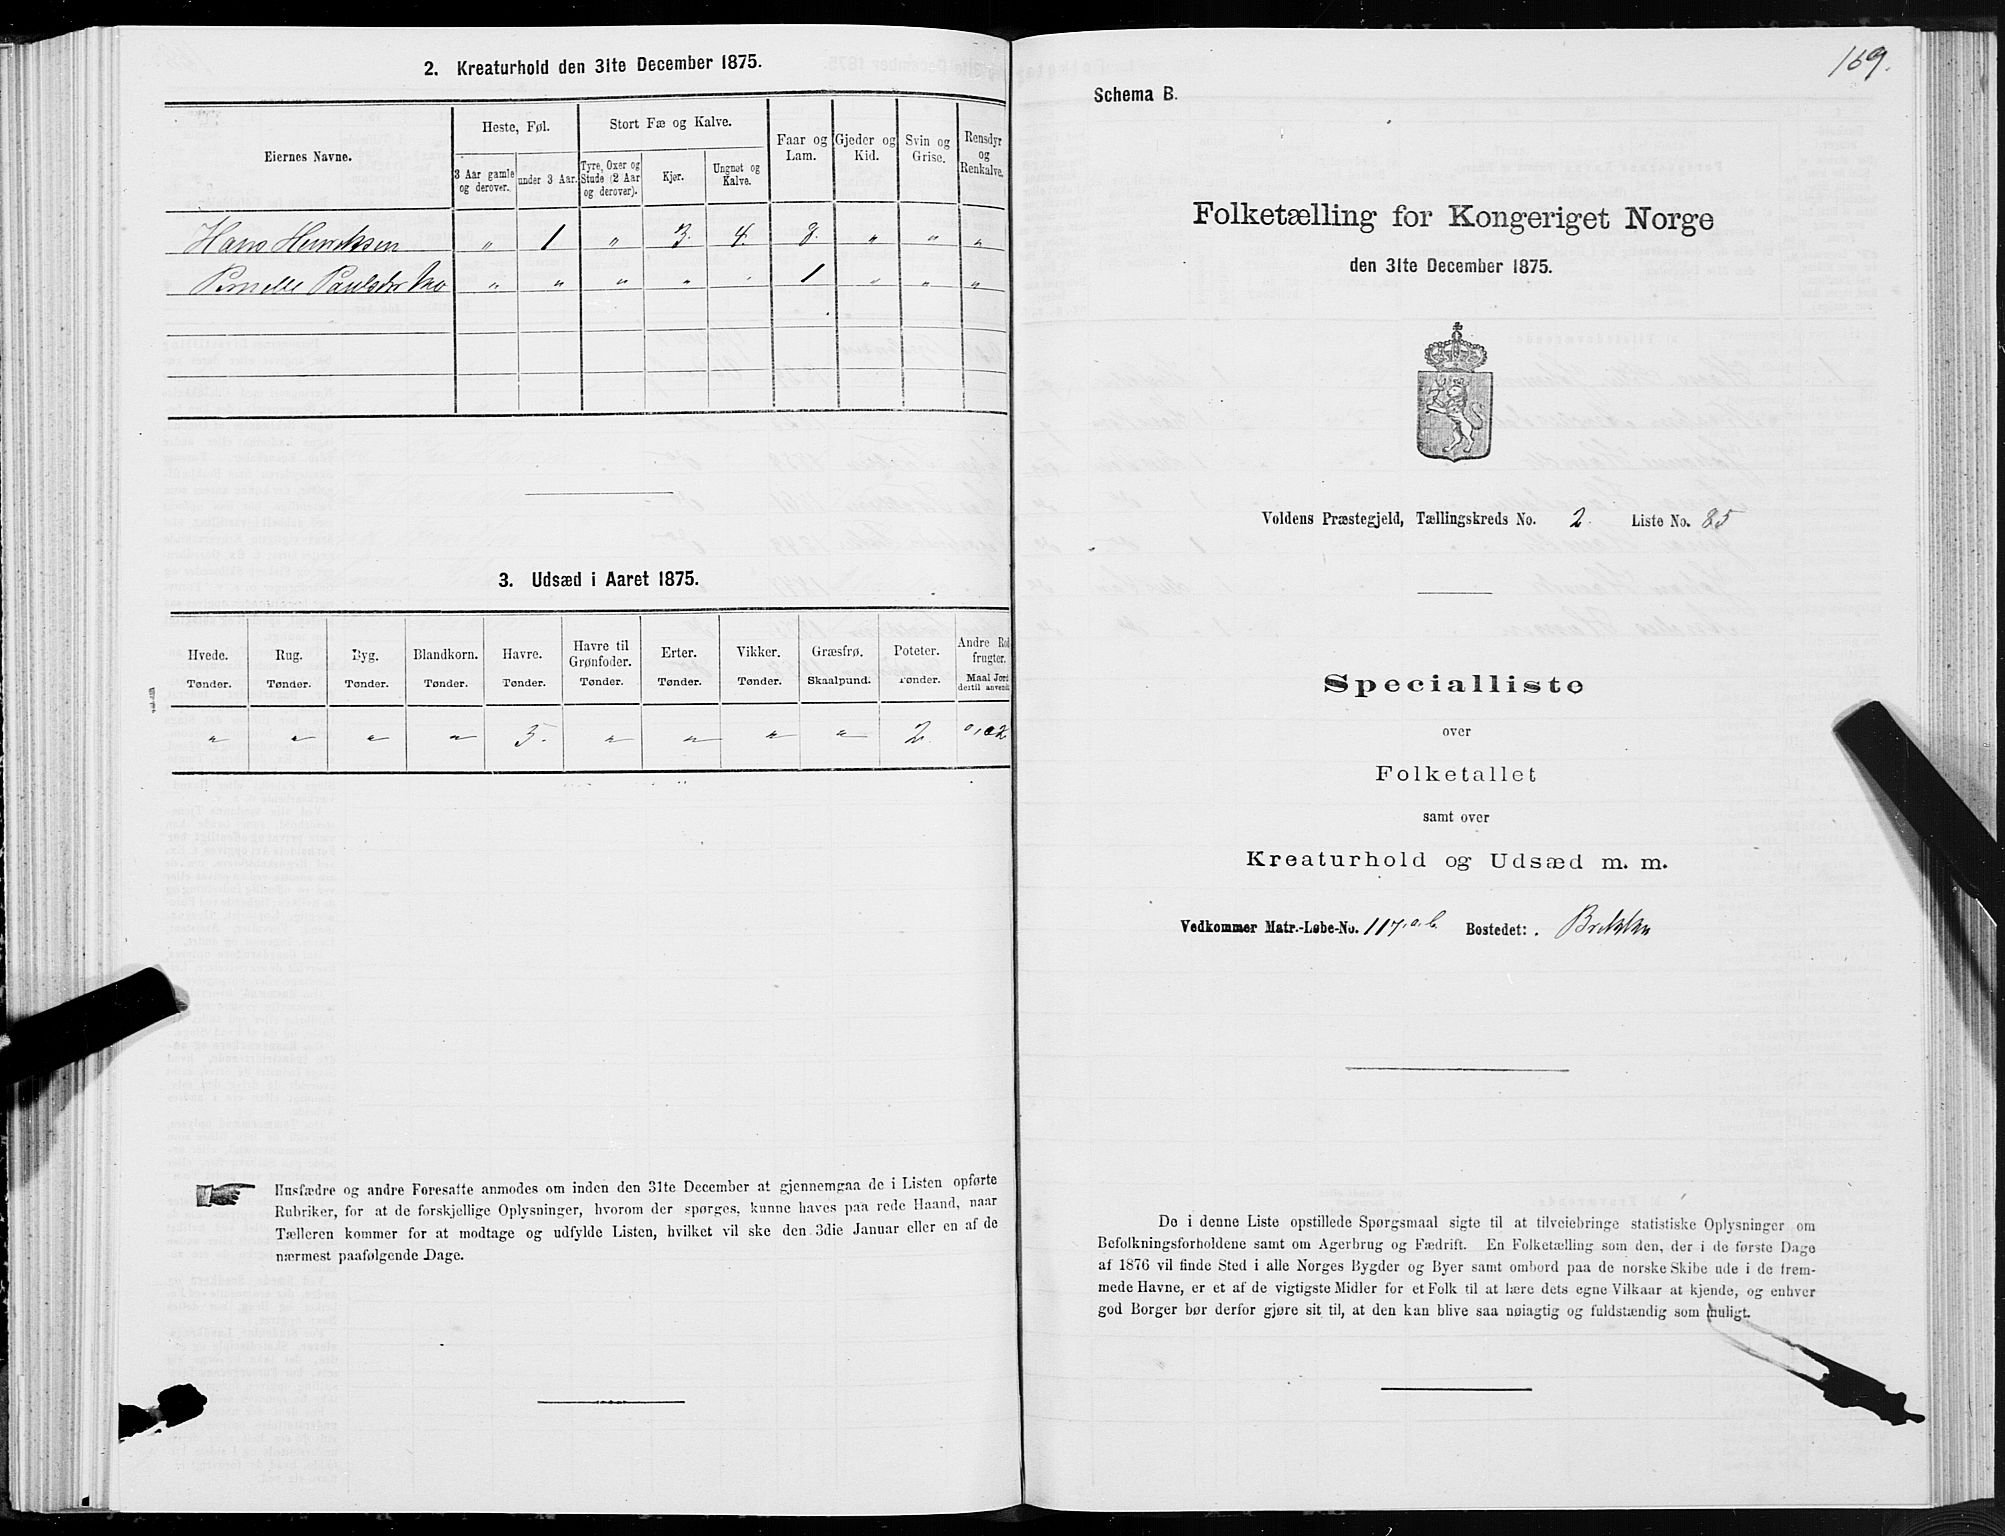 2. Kreaturhold den 31te December 1875.
Eiernes Navne.
Heste, Føl.
Stort Fæ og Kalve.
Faar og Lam.
Gjeder og Kid.
Svin og Grise.
Rensdyr og Renkalve.
3 Aar gamle og derover.
under 3 Aar.
Tyre, Oxer og Stude (2 Aar og derover).
Kjør.
Ungnøt og Kalve.
Hans Henriksen " 1 " 3. 4. 8. " " "
Pernelle Paulsdtr " " " " " 1 " " "
3. Udsæd i Aaret 1875.
Hvede. Rug. Byg. Blandkorn. Havre. Havre til Grønfoder. Erter. Vikker. Græsfrø. Poteter. Andre Rodfrugter.
Tønder. Tønder. Tønder. Tønder. Tønder. Tønder. Tønder. Tønder. Skaalpund. Tønder. Maal Jord dertil anvendt
" " " " 5. " " " " 2.
Husfædre og andre Foresatte anmodes om inden den 31te December at gjennemgaa de i Listen opførte
Rubriker, for at de forskjellige Oplysninger, hvorom der spørges, kunne haves paa rede Haand, naar
Tælleren kommer for at modtage og udfylde Listen, hvilket vil ske den 3die Januar eller en af de
nærmest paafølgende Dage.
169.
Schema B.
Folketælling for Kongeriget Norge
den 31te December 1875.
Voldens Præstegjeld, Tællingskreds No. 2. Liste No. 85
Specialliste
over
Folketallet
samt over
Kreaturhold og Udsæd m. m.
Vedkommer Matr.-Løbe-No. 117, a. b. Bostedet: . Brekken
De i denne Liste opstillede Spørgsmaal sigte til at tilveiebringe statistiske Oplysninger om
Befolkningsforholdene samt om Agerbrug og Fædrift. En Folketælling som den, der i de første Dage
af 1876 vil finde Sted i alle Norges Bygder og Byer samt ombord paa de norske Skibe ude i de frem-
mede Havne, er et af de vigtigste Midler for et Folk til at lære dets egne Vilkaar at kjende, og enhver
god Borger bør derfor gjøre sit til, at den kan blive saa nøiagtig og fuldstændig som muligt.